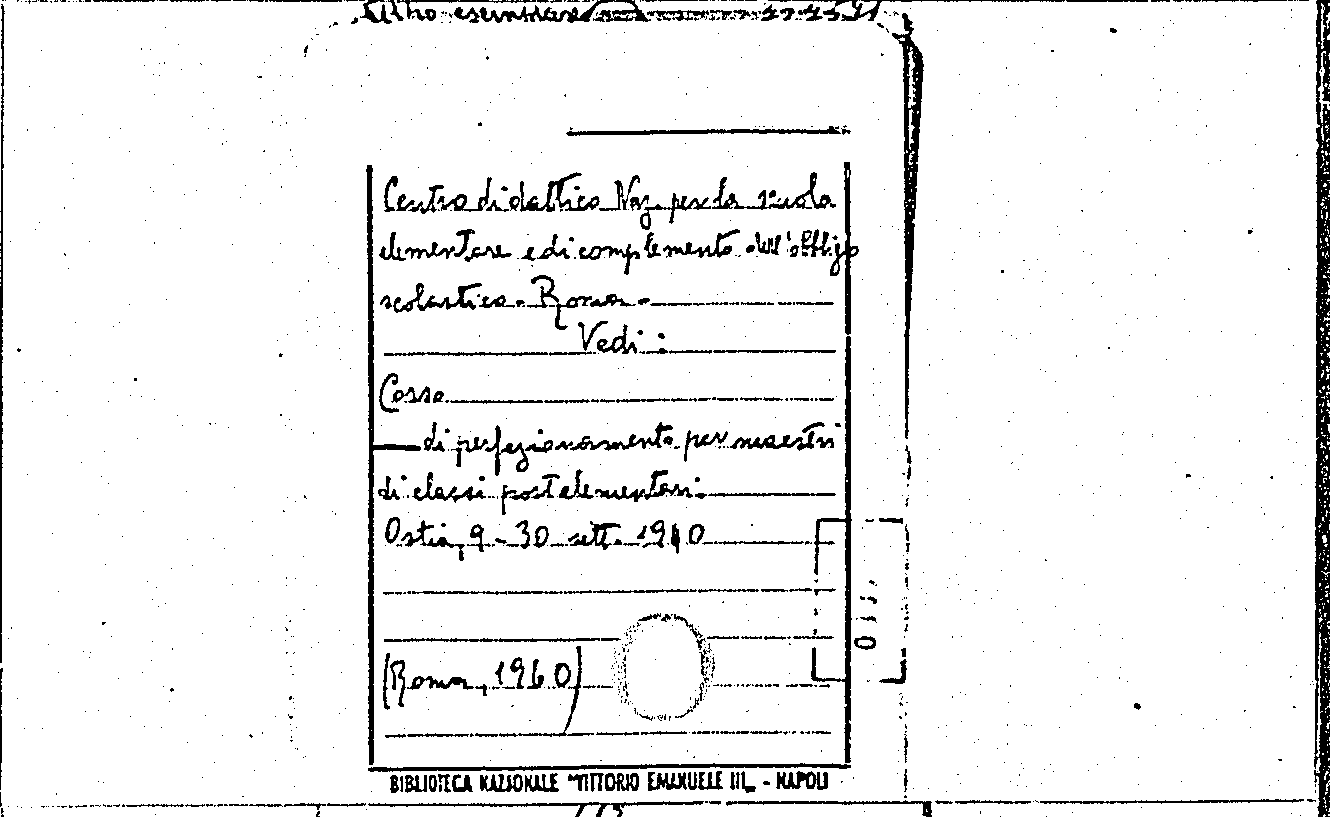 Centro didattico Naz. per la scuola
elementare e di complemento dell'obbligo
scolastico - Roma -
Vedi :
Corso
— di perfezionamento per maestri
di classi postelementari.
Ostia, 9 - 30 sett. 1960
(Roma, 1960)
BIBLIOTECA NAZIONALE "VITTORIO EMANUELE III" - NAPOLI